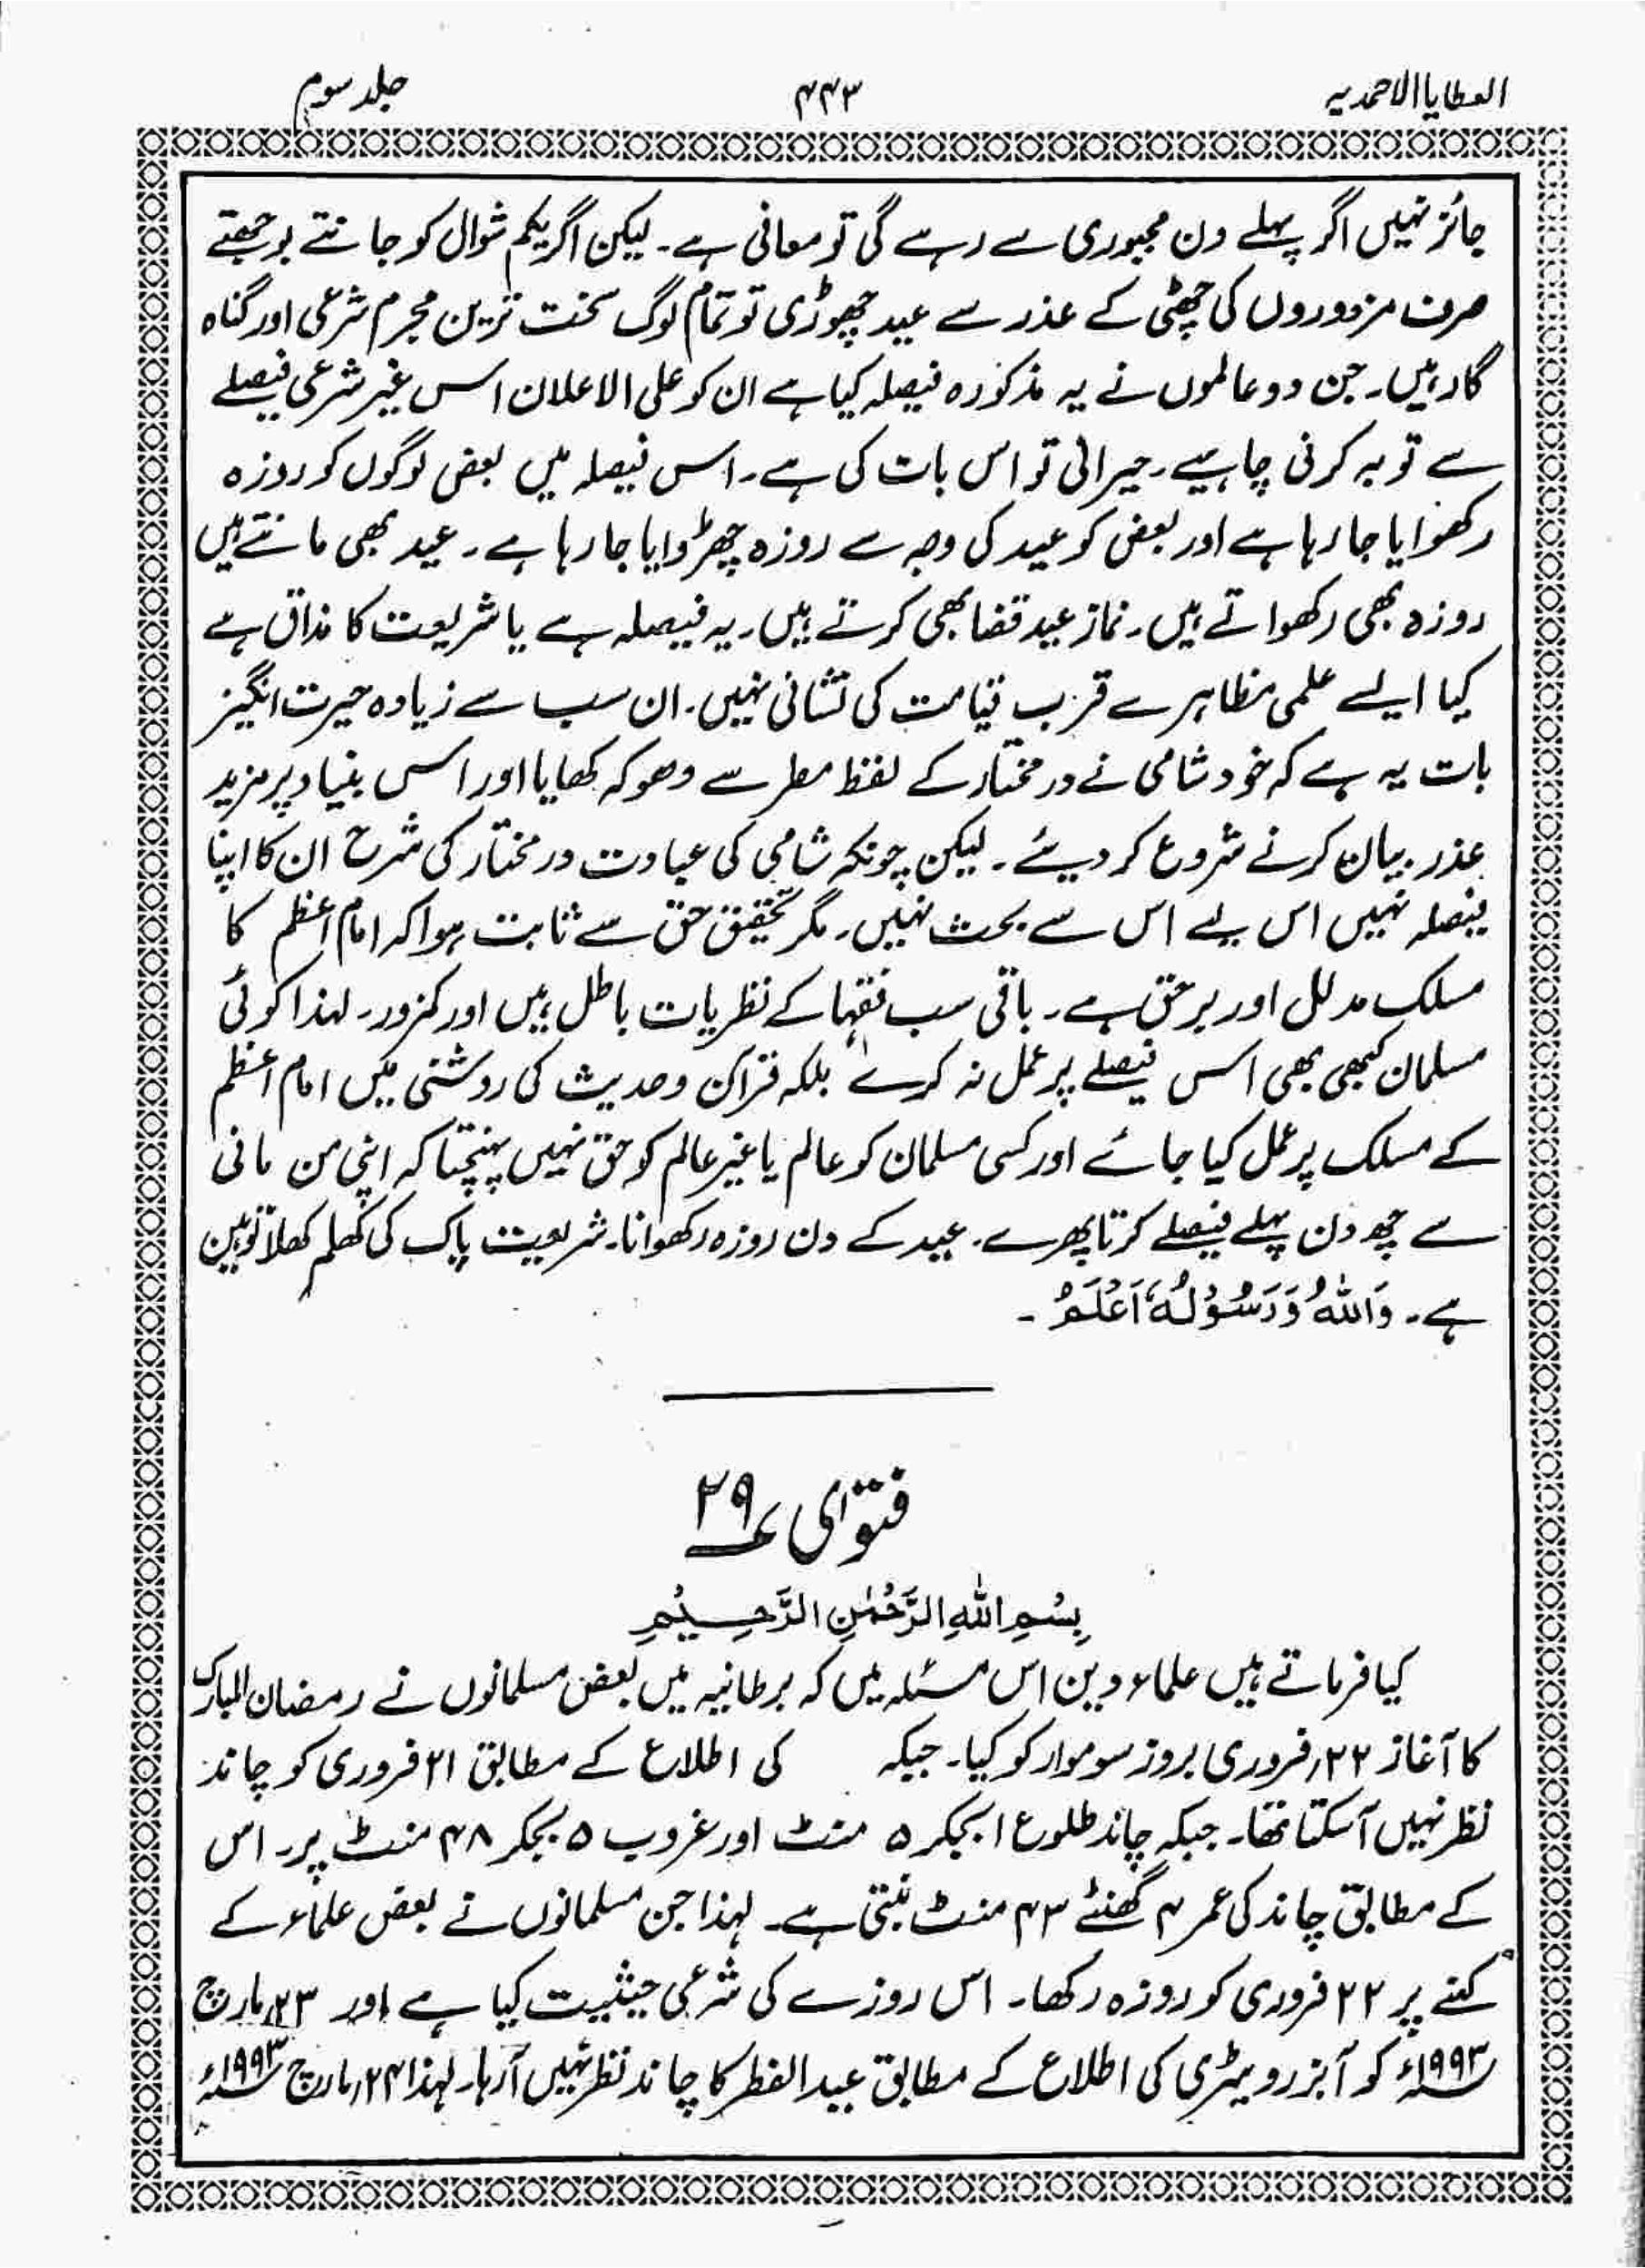 العطایا الاحمدیہ
۴۴۳
جلد سوم
جائز نہیں اگر پہلے دن مجبوری سے رہے گی تو معافی ہے۔ لیکن اگر یکم شوال کو جانتے بوجھتے
صرف مزدوروں کی چھٹی کے عذر سے عید چھوڑی تو تمام لوگ سخت ترین مجرم شرعی اور گناہ
گار ہیں۔ جن دو عالموں نے یہ مذکورہ فیصلہ کیا ہے ان کو علی الاعلان اس غیر شرعی فیصلے
سے توبہ کرنی چاہیے۔ حیرانی تو اس بات کی ہے۔ اس فیصلہ میں بعض لوگوں کو روزہ
رکھوایا جا رہا ہے اور بعض کو عید کی وجہ سے روزہ چھڑوایا جا رہا ہے۔ عید بھی مانتے ہیں
روزہ بھی رکھواتے ہیں۔ نماز عید قضا بھی کرتے ہیں۔ یہ فیصلہ ہے یا شریعت کا مذاق ہے
کیا ایسے علمی مظاہرے قرب قیامت کی نشانی نہیں۔ ان سب سے زیادہ حیرت انگیز
بات یہ ہے کہ خود شامی نے در مختار کے لفظ مطر سے دھوکہ کھایا اور اس بنیاد پر مزید
عذر بیان کرنے شروع کر دیئے۔ لیکن چونکہ شامی کی عبادت در مختار کی شرح ان کا اپنا
فیصلہ نہیں اس لیے اس سے بحث نہیں۔ مگر تحقیق حق سے ثابت ہوا کہ امام اعظم کا
مسلک مدلل اور برحق ہے۔ باقی سب فقہا کے نظریات باطل ہیں اور کمزور۔ لہذا کوئی
مسلمان کبھی بھی اس فیصلے پر عمل نہ کرے بلکہ قرآن و حدیث کی روشنی میں امام اعظم
کے مسلک پر عمل کیا جائے اور کسی مسلمان کو عالم یا غیر عالم کو حق نہیں پہنچتا کہ اپنی من مانی
سے چھ دن پہلے فیصلے کرتا پھرے۔ عید کے دن روزہ رکھوانا۔ شریعت پاک کی کھلم کھلا توہین
ہے۔ وَاللّٰہُ وَرَسُوْلُہٗ اَعْلَمُ۔
فتوٰی ۲۹
بِسْمِ اللّٰهِ الرَّحْمٰنِ الرَّحِيْمِ
کیا فرماتے ہیں علماء دین اس مسئلہ میں کہ برطانیہ میں بعض مسلمانوں نے رمضان المبارک
کا آغاز ۲۲؍فروری بروز سوموار کو کیا۔ جبکہ کی اطلاع کے مطابق ۲۱ فروری کو چاند
نظر نہیں آسکتا تھا۔ جبکہ چاند طلوع ۱ بجکر ۵ منٹ اور غروب ۵ بجکر ۴۸ منٹ پر۔ اس
کے مطابق چاند کی عمر ۴ گھنٹے ۴۳ منٹ بنتی ہے۔ لہذا جن مسلمانوں نے بعض علماء کے
کہنے پر ۲۲ فروری کو روزہ رکھا۔ اس روزے کی شرعی حیثیت کیا ہے اور ۲۳؍مارچ
۱۹۹۳ء کو آبزرویٹری کی اطلاع کے مطابق عید الفطر کا چاند نظر نہیں آرہا۔ لہذا ۲۴؍مارچ ۱۹۹۳ء